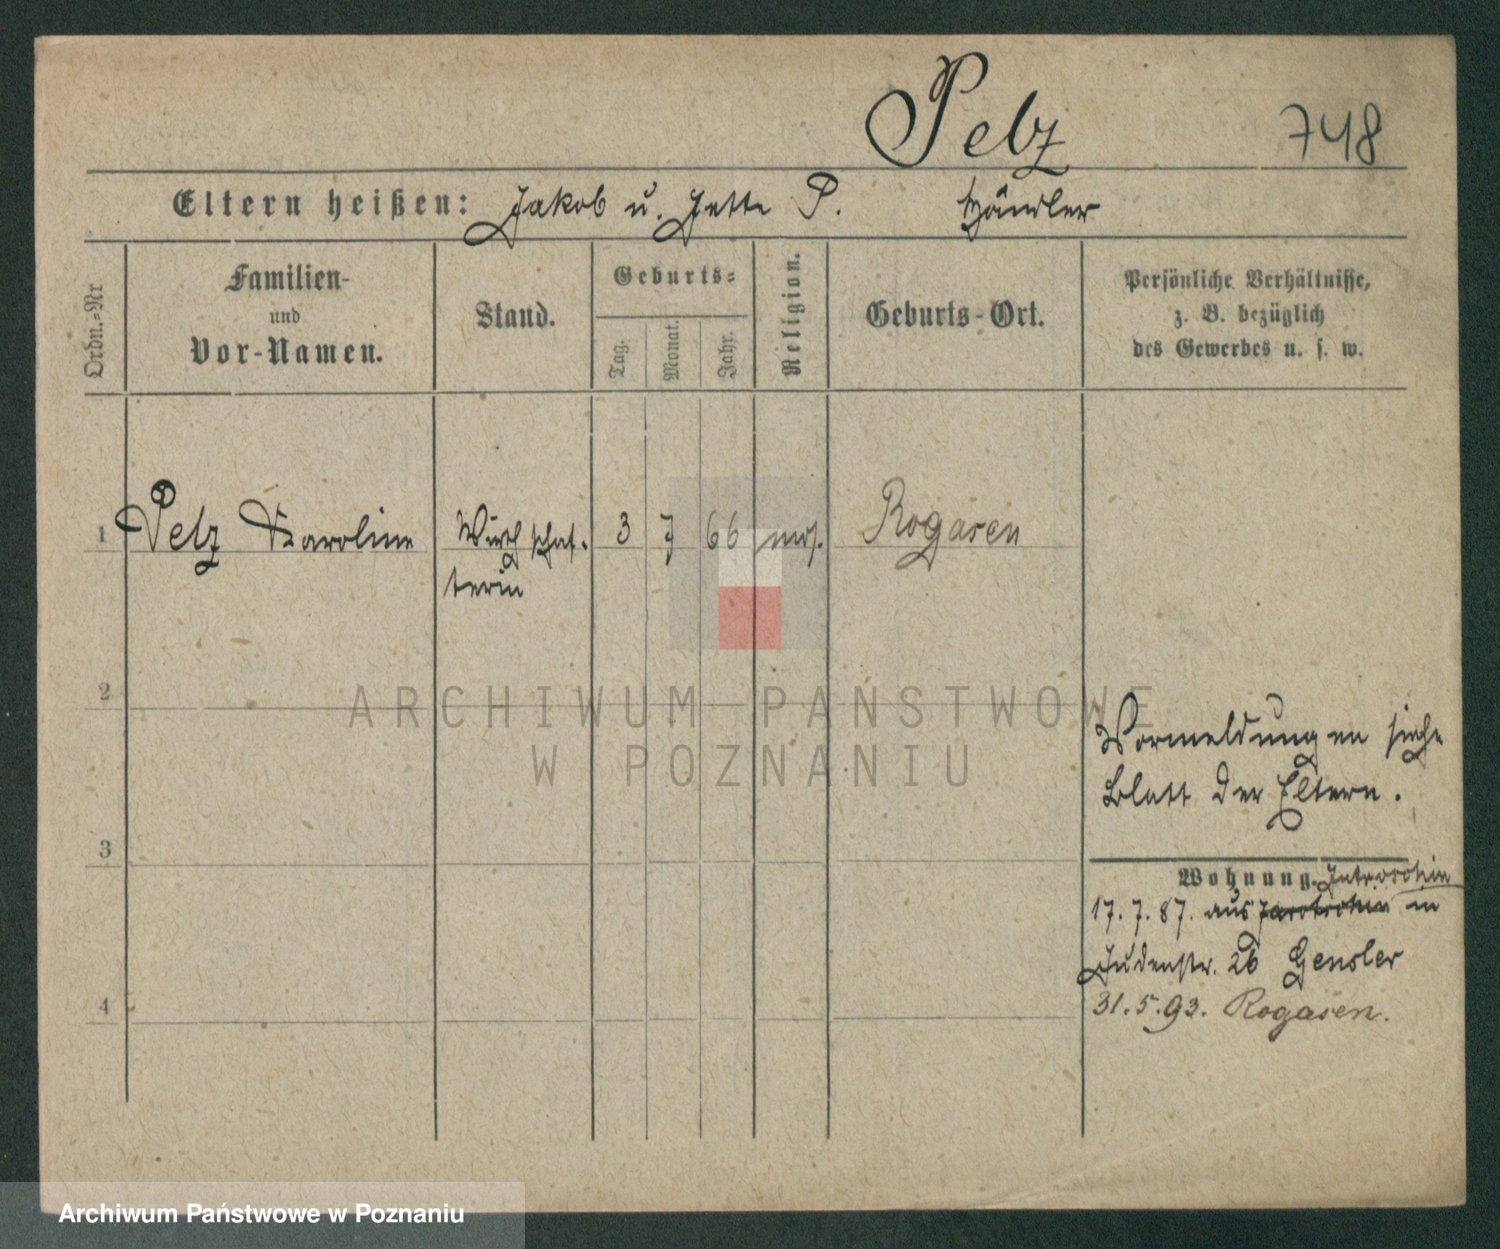 Pelz 748
Eltern heißen: Jakob u. Jette P. Händler
Ordn.-Nr
Familien-
und
Vor-Namen.
Stand.
Geburts-
Tag.
Monat.
Jahr.
Religion.
Geburts-Ort.
Persönliche Verhältnisse,
z. B. bezüglich
des Gewerbes u. s. w.
1 Pelz Karoline Wirthschaf- 3 7 66 mos. Rogasen
terin
2
3
4
Vormeldungen siehe
Blatt der Eltern.
Wohnung.
17. 7. 87. aus in
Judenstr. 26 Gensler
31.5.93. Rogasen.
ARCHIWUM PAŃSTWOWE
W POZNANIU
Archiwum Państwowe w Poznaniu